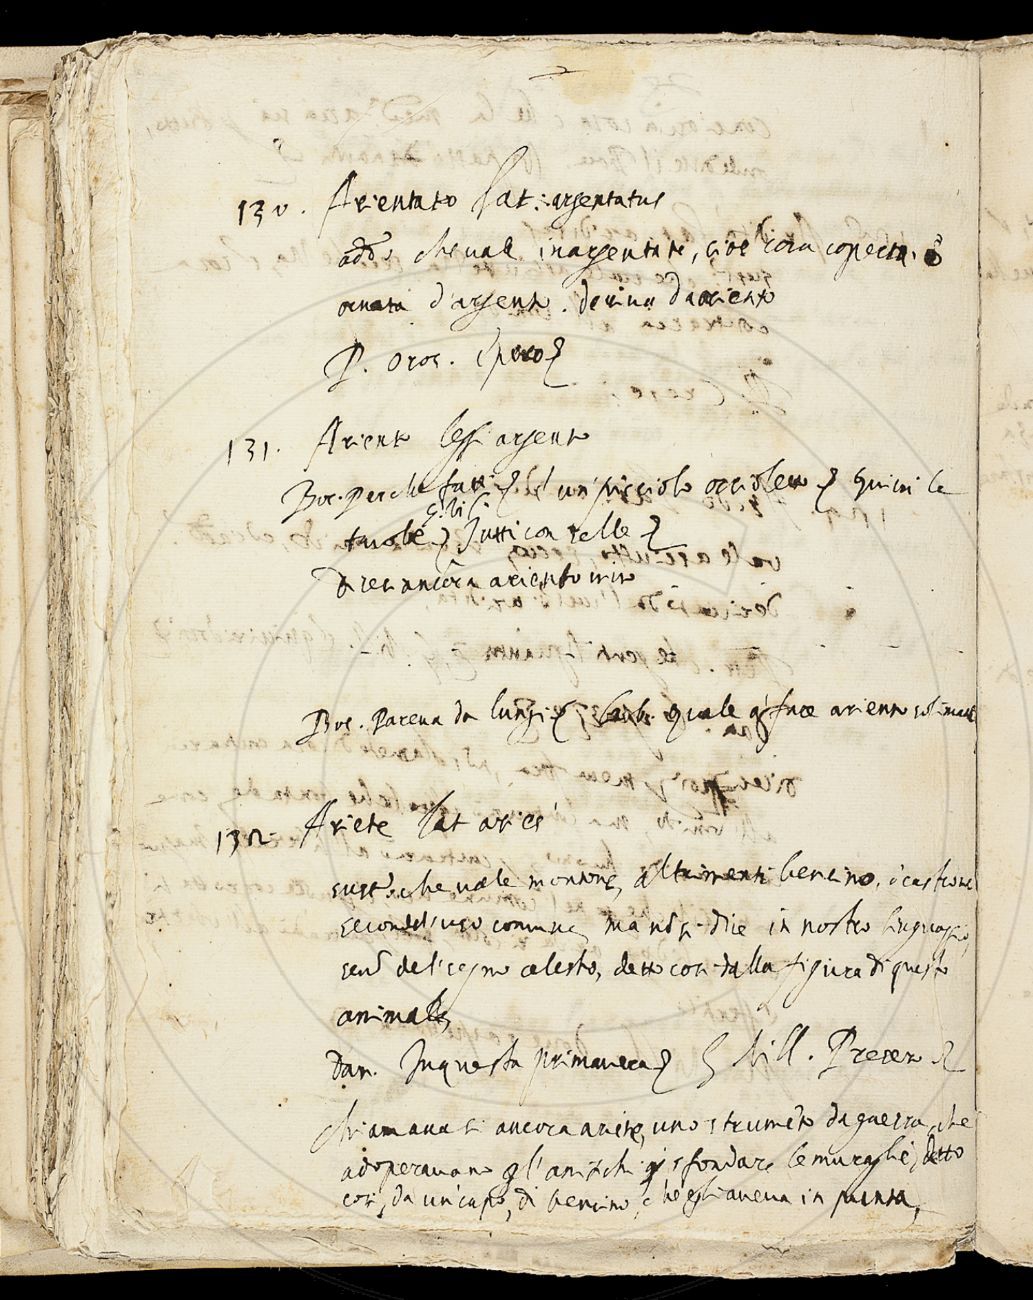 130. Arientato Lat: argentatus
add.º che vale inargentato, cioè coperta. ò
ornata d'argento. deriva da ariento
P. Oros.
131. Ariento leggi argento
Boc. Perche fatti un' picciolo orcioletto Quivi le
tavole Tutti con
Dicesi ancora ariento vivo
Boc. Pareva da lungi quale q face ariento
132. Ariete Lat aries
sust.º che vale montone, altrimenti bercino, ò castrone
secondo l'uso comune, ma nō si dice in nostro linguaggio,
senō del segno celeste, detto così dalla figura di questo
animale,
Dan. In questa primavera G. Vill. Presero
chiamavasi ancora ariete, uno strumēto da guerra, che
adoperavano gl'antichi sfondare le muraglie, detto
così, da un' capo, di bercino, ch'egli aveva in punta,